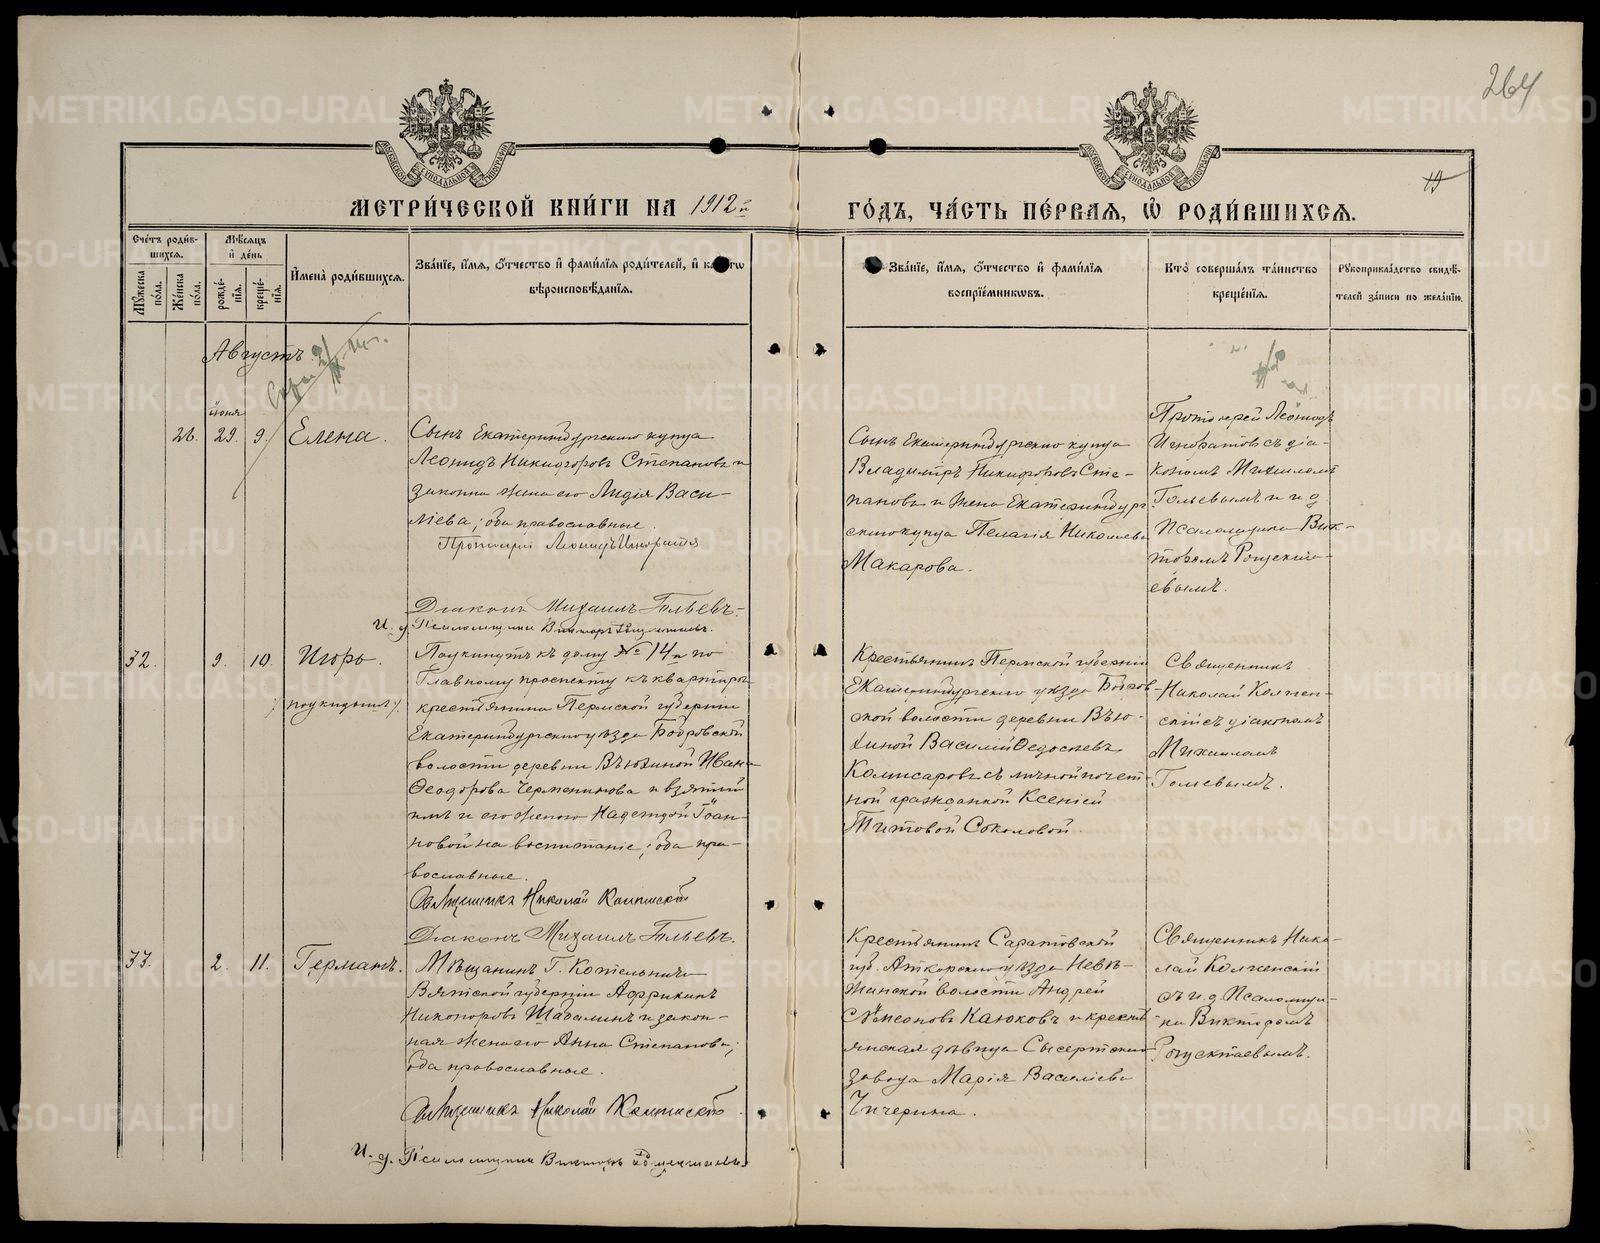 264
19
МОСКОВСКОЙ СУНОДАЛЬНОЙ ТИПОГРАФІИ
МОСКОВСКОЙ СУНОДАЛЬНОЙ ТИПОГРАФІИ
МЕТРИ́ЧЕСКОЙ КНИ́ГИ НА 1912й ГО́ДЪ, ЧА́СТЬ ПЕ́РВАЯ, Ѡ҆ РОДИ́ВШИХСЯ.
Сче́тъ роди́в-
шихся.
Мѣ́сяцъ
и҆ де́нь
Мꙋ́жеска по́ла.
Же́нска по́ла.
рожде́-
нїя.
креще́-
нїя.
И҆мена̀ роди́вшихся.
Зва́нїе, и҆́мя, ѻ҆́тчество и҆ фами́лїя роди́телей, и҆ како́гѡ
вѣроисповѣ́данїя.
Зва́нїе, и҆́мя, ѻ҆́тчество и҆ фами́лїя
воспрїе́мниковъ.
Кто̀ соверша́лъ та́инство
креще́нїя.
Рꙋкоприкла́дство свидѣ́-
телей за́писи по жела́нїю.
Августъ.
іюня
26. 29. 9. Елена.
Сынъ Екатеринбургскаго купца
Леонидъ Никифоровъ Степановъ и
законная жена его Лидія Васи-
ліева; оба православные.
Протоіерей Леонидъ Игноратовъ
Діаконъ Михаилъ Гольевъ.
И. д. Псаломщика Викторъ
Сынъ Екатеринбургскаго купца
Владиміръ Никифоровъ Сте-
пановъ и жена Екатеринбург-
скаго купца Пелагія Николаева
Макарова.
Протоіерей Леонидъ
Игноратовъ съ діа-
кономъ Михаиломъ
Гольевымъ и и.д.
Псаломщика Вик-
торомъ
евымъ.
32. 9. 10. Игорь.
/подкидышъ/.
Подкинутъ къ дому № 14й по
Главному проспекту къ квартирѣ
крестьянина Пермской губерніи
Екатеринбургскаго уѣзда Бобровской
волости деревни Вьюхиной Ивана
Ѳеодорова Черменинова и взятый
имъ и его женою Надеждой Іоан-
новой на воспитаніе; оба пра-
вославные.
Священникъ Николай
Діаконъ Михаилъ Гольевъ.
Крестьянинъ Пермской губерніи
Екатеринбургскаго уѣзда Бобров-
ской волости деревни Вью-
хиной Василій Ѳедосѣевъ
Комисаровъ съ личной почет-
ной гражданкой Ксеніей
Титовой Соколовой.
Священникъ
Николай
съ діакономъ
Михаиломъ
Гольевымъ.
33. 2. 11. Германъ.
Мѣщанинъ г. Котельнича
Вятской губерніи Африканъ
Никоноровъ Шабалинъ и закон-
ная жена его Анна Степанова;
оба православные.
Священникъ Николай
И. д. Псаломщика Викторъ
Крестьянинъ Саратовской
губ. Аткарскаго уѣзда Невѣ-
жинской волости Андрей
Сѵмеоновъ Каюковъ и кресть-
янская дѣвица Сысертскаго
завода Марія Василіева
Чичерина.
Священникъ Нико-
лай
съ и.д. Псаломщи-
ка Викторомъ
METRIKI.GASO-URAL.RU